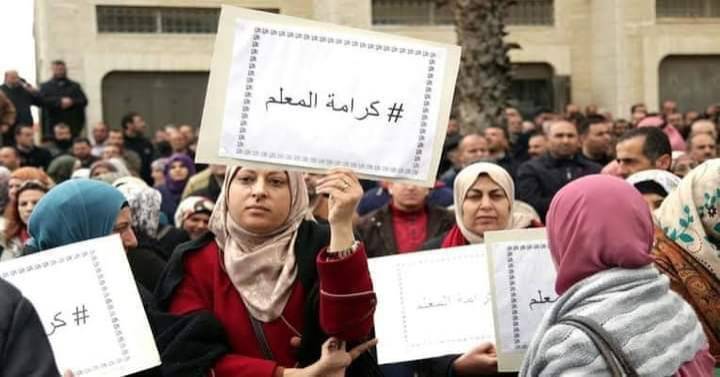 # كرامة المعلم
# كرا
كرامة المعلم
المعلم